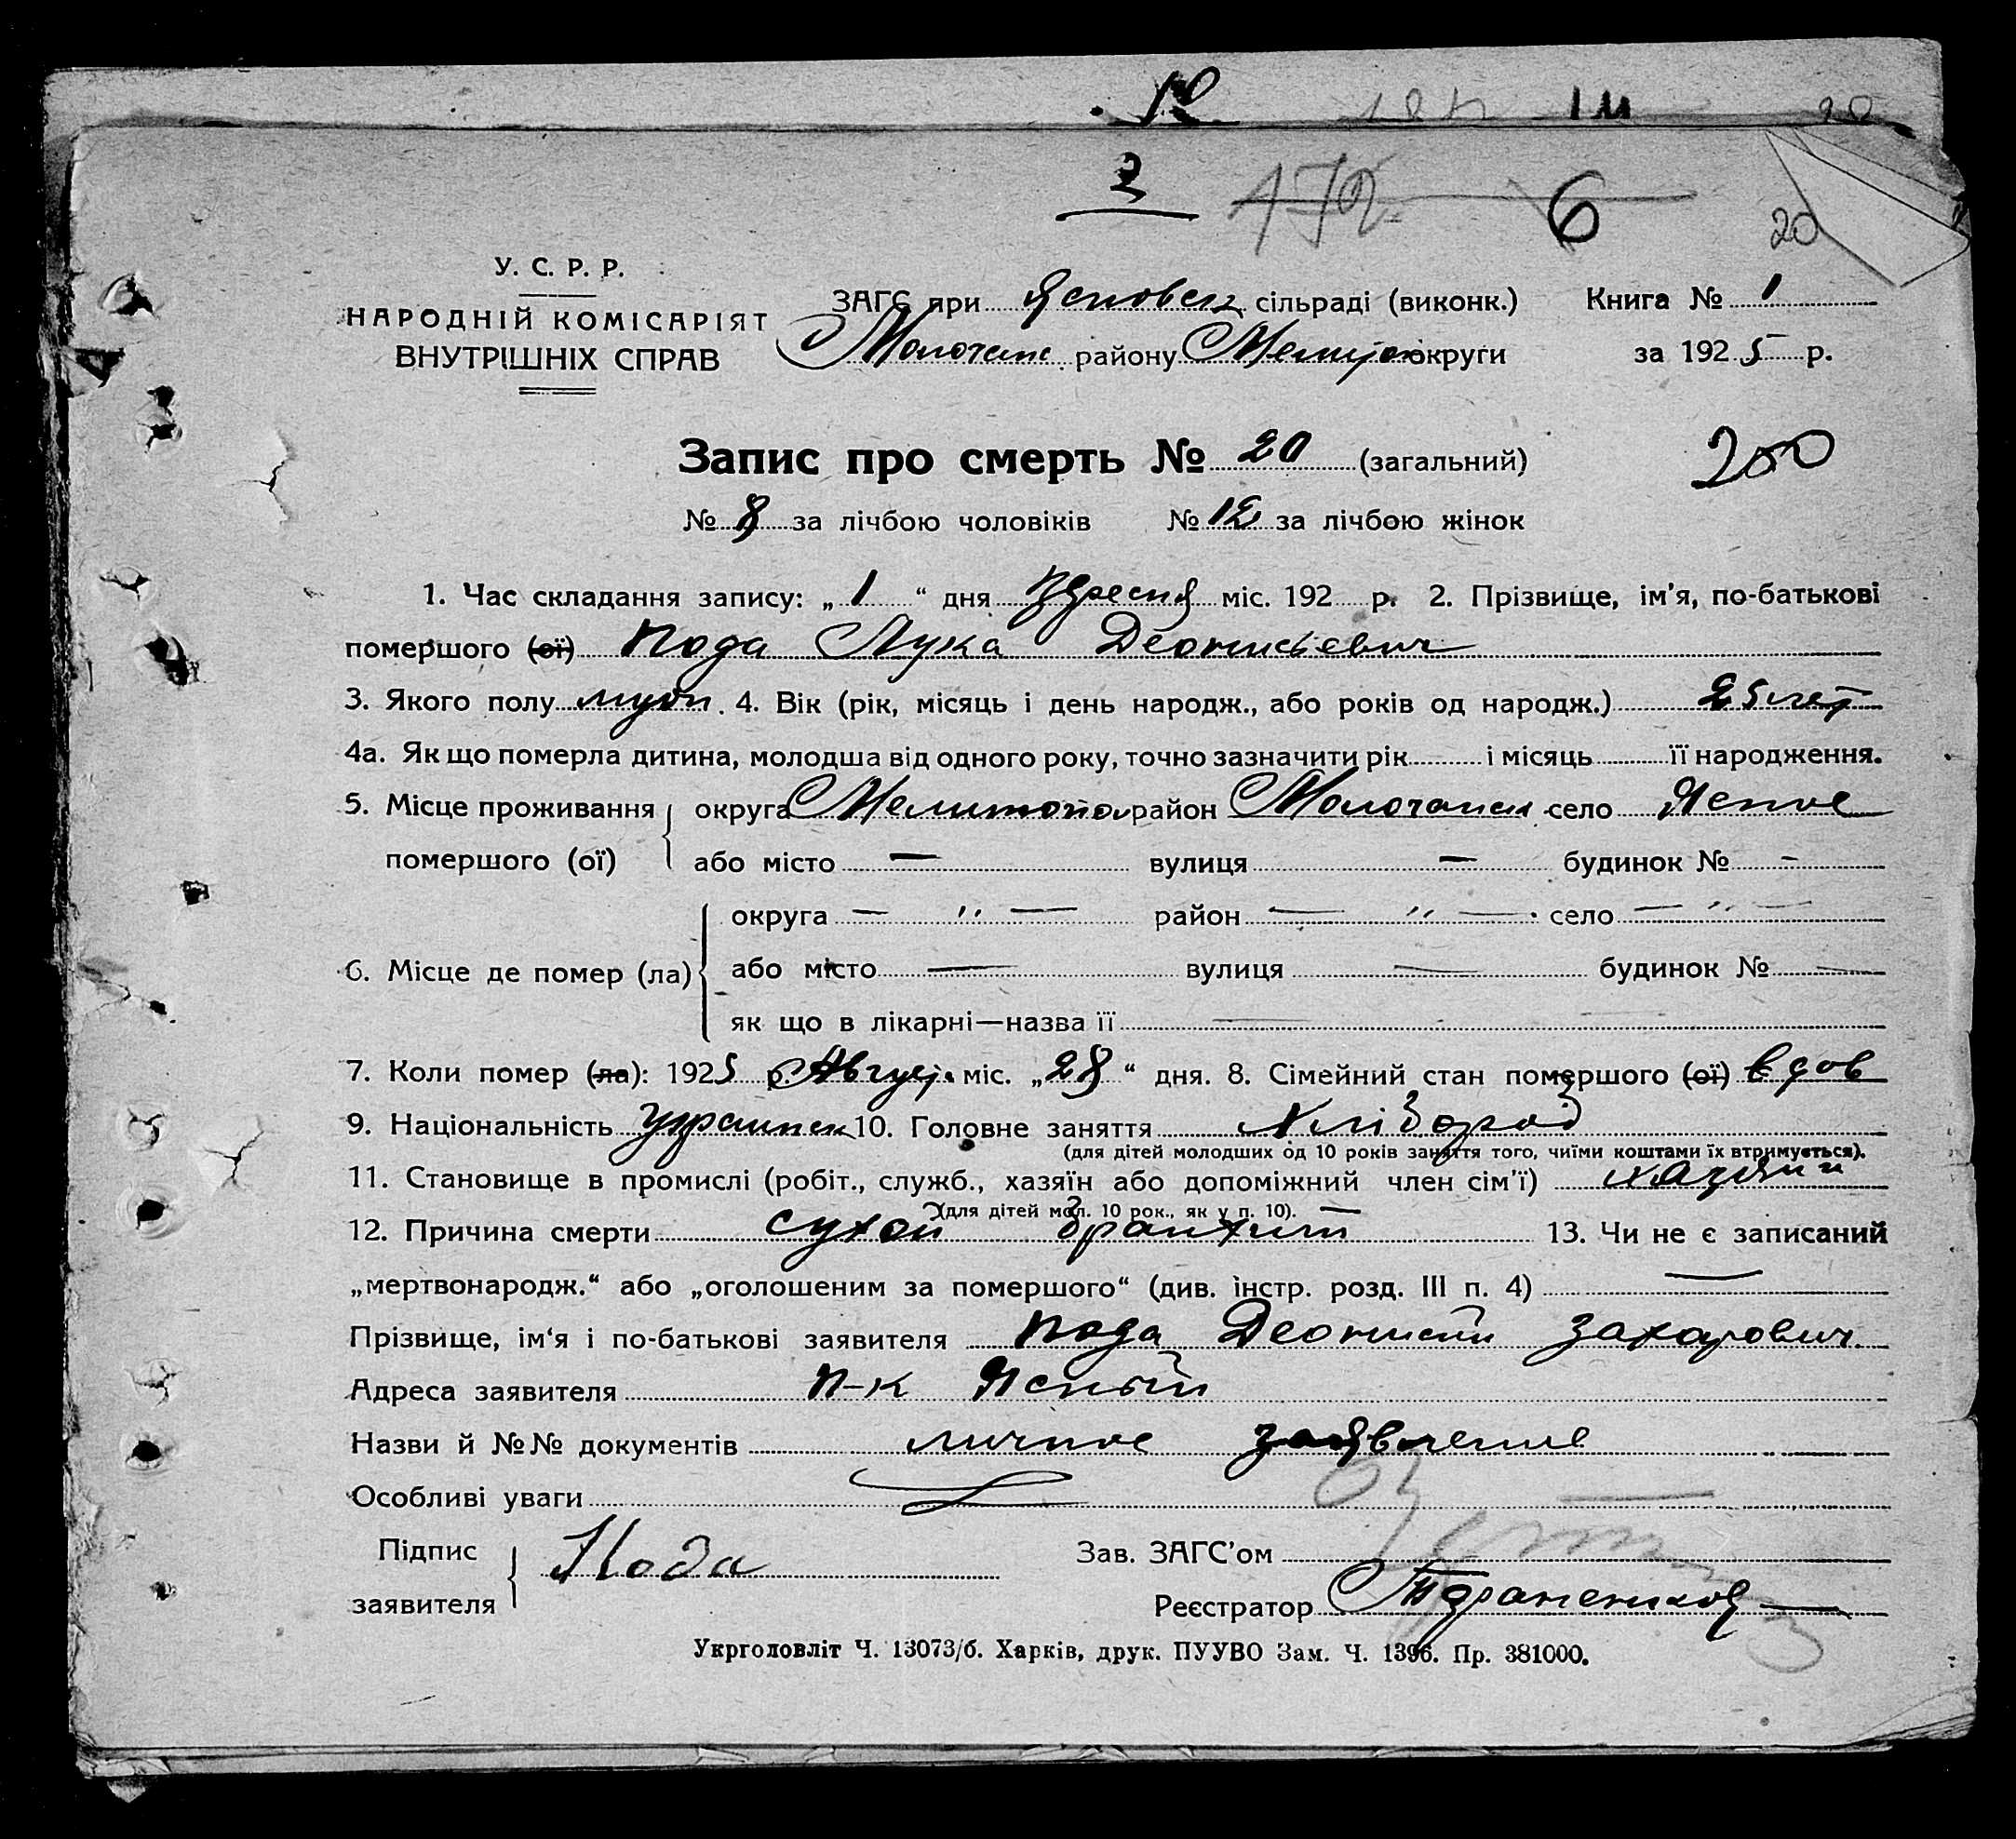 3 172 6
20
У. С. Р. Р.
НАРОДНІЙ КОМІСАРІЯТ
ВНУТРІШНІХ СПРАВ
ЗАГС при Ясновск сільраді (виконк.) Книга № 1
Молочанс району округи за 1925 р.
Запис про смерть № 20 (загальний)
250
№ 8 за лічбою чоловіків № 12 за лічбою жінок
1. Час складання запису: „ 1 “ дня міс. 192 р. 2. Прізвище, ім'я, по-батькові
помершого (ої) Пода Лука Деонисьевич
3. Якого полу муж. 4. Вік (рік, місяць і день народж., або років од народж.) 25 лет
4а. Як що померла дитина, молодша від одного року, точно зазначити рік і місяць її народження.
5. Місце проживання округа Мелитопол район Молочанск село Ясное
помершого (ої) або місто — вулиця — будинок № -
округа — " — район — " — село — " —
6. Місце де помер (ла) або місто — вулиця — будинок № —
як що в лікарні—назва її —
7. Коли помер (ла): 1925 р. Август. міс. „ 28 “ дня. 8. Сімейний стан помершого (ої) вдов
9. Національність украинск 10. Головне заняття хлібороб
(для дітей молодших од 10 років заняття того, чиїми коштами їх втримується).
11. Становище в промислі (робіт., служб., хазяїн або допоміжний член сім'ї) хазяин
(для дітей мол. 10 рок., як у п. 10). —
12. Причина смерти сухой бранхит 13. Чи не є записаний
„мертвонародж.“ або „оголошеним за помершого“ (див. інстр. розд. III п. 4) —
Прізвище, ім'я і по-батькові заявителя Пода Деонисий Захарович.
Адреса заявителя п-к Ясный
Назви й №№ документів личное заявление
Особливі уваги
Підпис
заявителя Пода
Зав. ЗАГС'ом
Реєстратор
Укрголовліт Ч. 13073/б. Харків, друк. ПУУВО Зам. Ч. 1396. Пр. 381000.